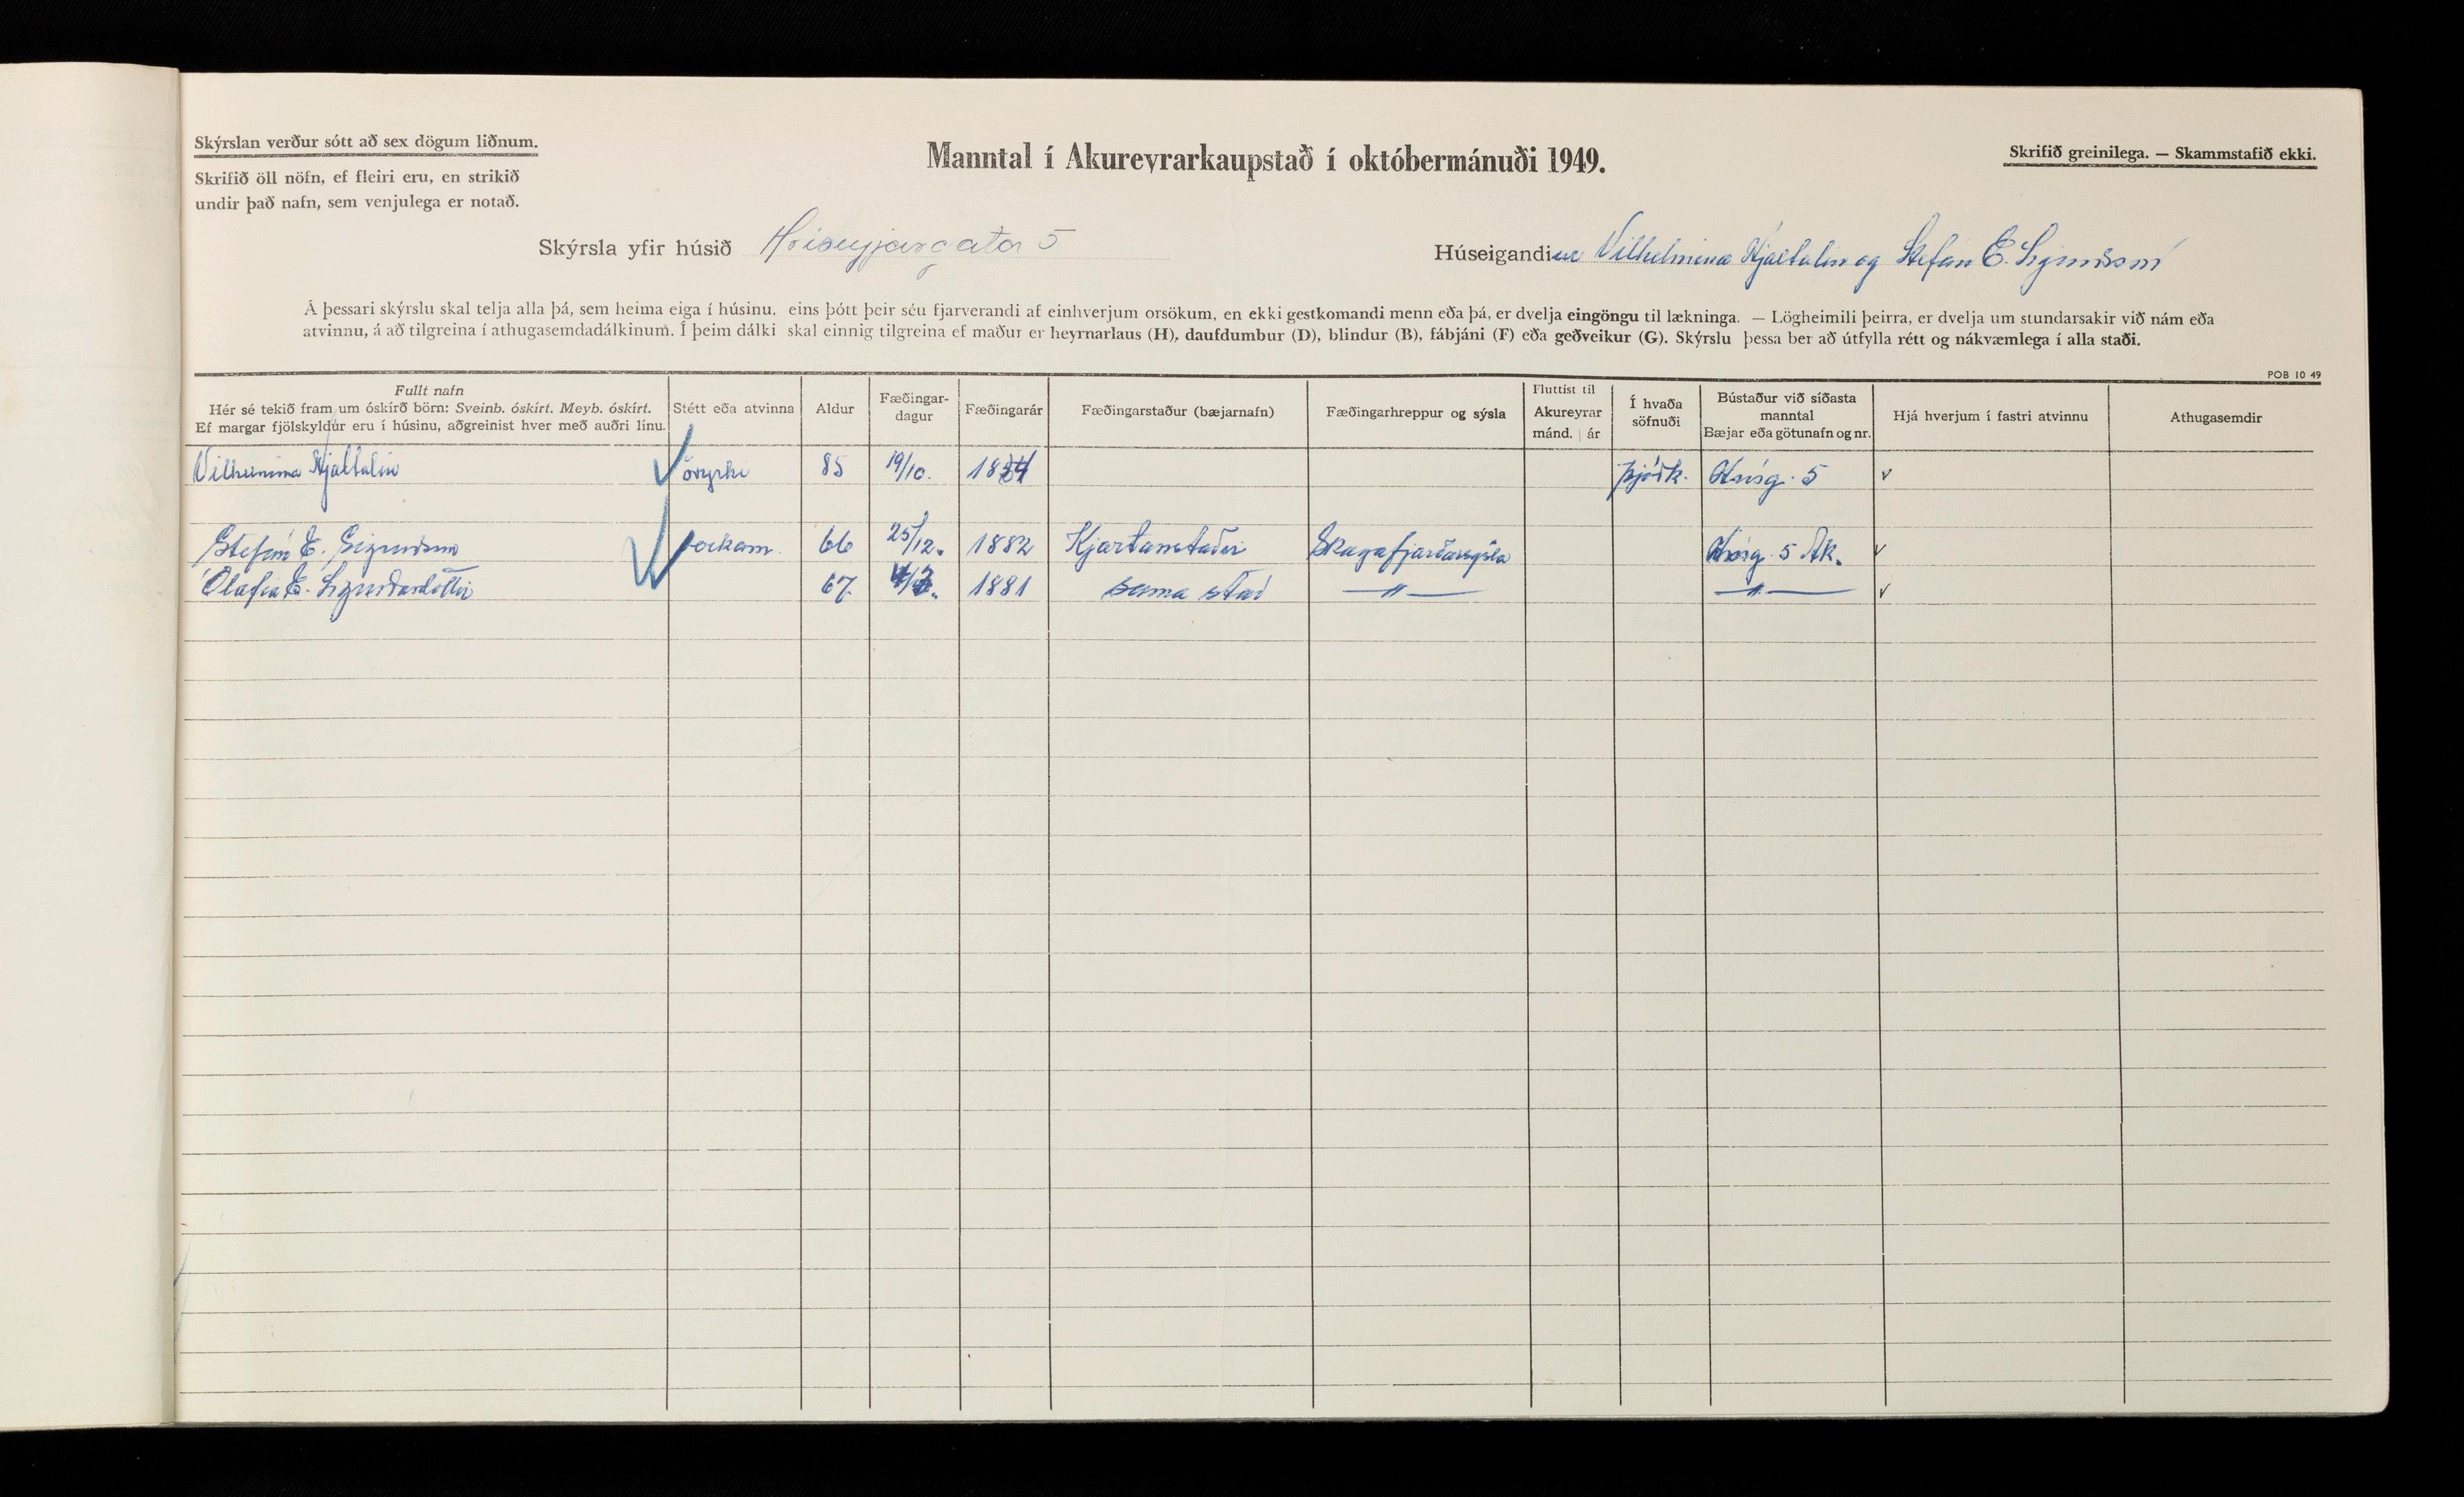 Skýrslan verður sótt að sex dögum liðnum.
Skrifið öll nöfn, ef fleiri eru, en strikið
undir það nafn, sem venjulega er notað.
Manntal í Akureyrarkaupstað í októbermánuði 1949.
Skrifið greinilega. — Skammstafið ekki.
Skýrsla yfir húsið Hríseyjargata 5
Húseigandi Vilhelmina Hjaltalin og Stefán E. Sigurðsson
Á þessari skýrslu skal telja alla þá, sem heima eiga í húsinu, eins þótt þeir séu fjarverandi af einhverjum orsökum, en ekki gestkomandi menn eða þá, er dvelja eingöngu til lækninga. — Lögheimili þeirra, er dvelja um stundarsakir við nám eða
atvinnu, á að tilgreina í athugasemdadálkinum. Í þeim dálki skal einnig tilgreina ef maður er heyrnarlaus (H), daufdumbur (D), blindur (B), fábjáni (F) eða geðveikur (G). Skýrslu þessa ber að útfylla rétt og nákvæmlega í alla staði.
POB 10 49
Fullt nafn
Hér sé tekið fram um óskírð börn: Sveinb. óskírt. Meyb. óskírt.
Ef margar fjölskyldur eru í húsinu, aðgreinist hver með auðri línu.
Stétt eða atvinna
Aldur
Fæðingar-
dagur
Fæðingarár
Fæðingarstaður (bæjarnafn)
Fæðingarhreppur og sýsla
Fluttist til
Akureyrar
mánd. | ár
Í hvaða
söfnuði
Bústaður við síðasta
manntal
Bæjar eða götunafn og nr.
Hjá hverjum í fastri atvinnu
Athugasemdir
Vilhelmina Hjaltalin öryrki 85 19/10. þjóðk. Hrísg. 5 v
Stefán E. Sigurðsson 66 25/12. 1882 Kjartanstaðir Skagafjarðarsýsla Hrísg. 5 Ak. v
Ólafia E. Sigurðardóttir 67 1881 sama stað —〃— —〃— v